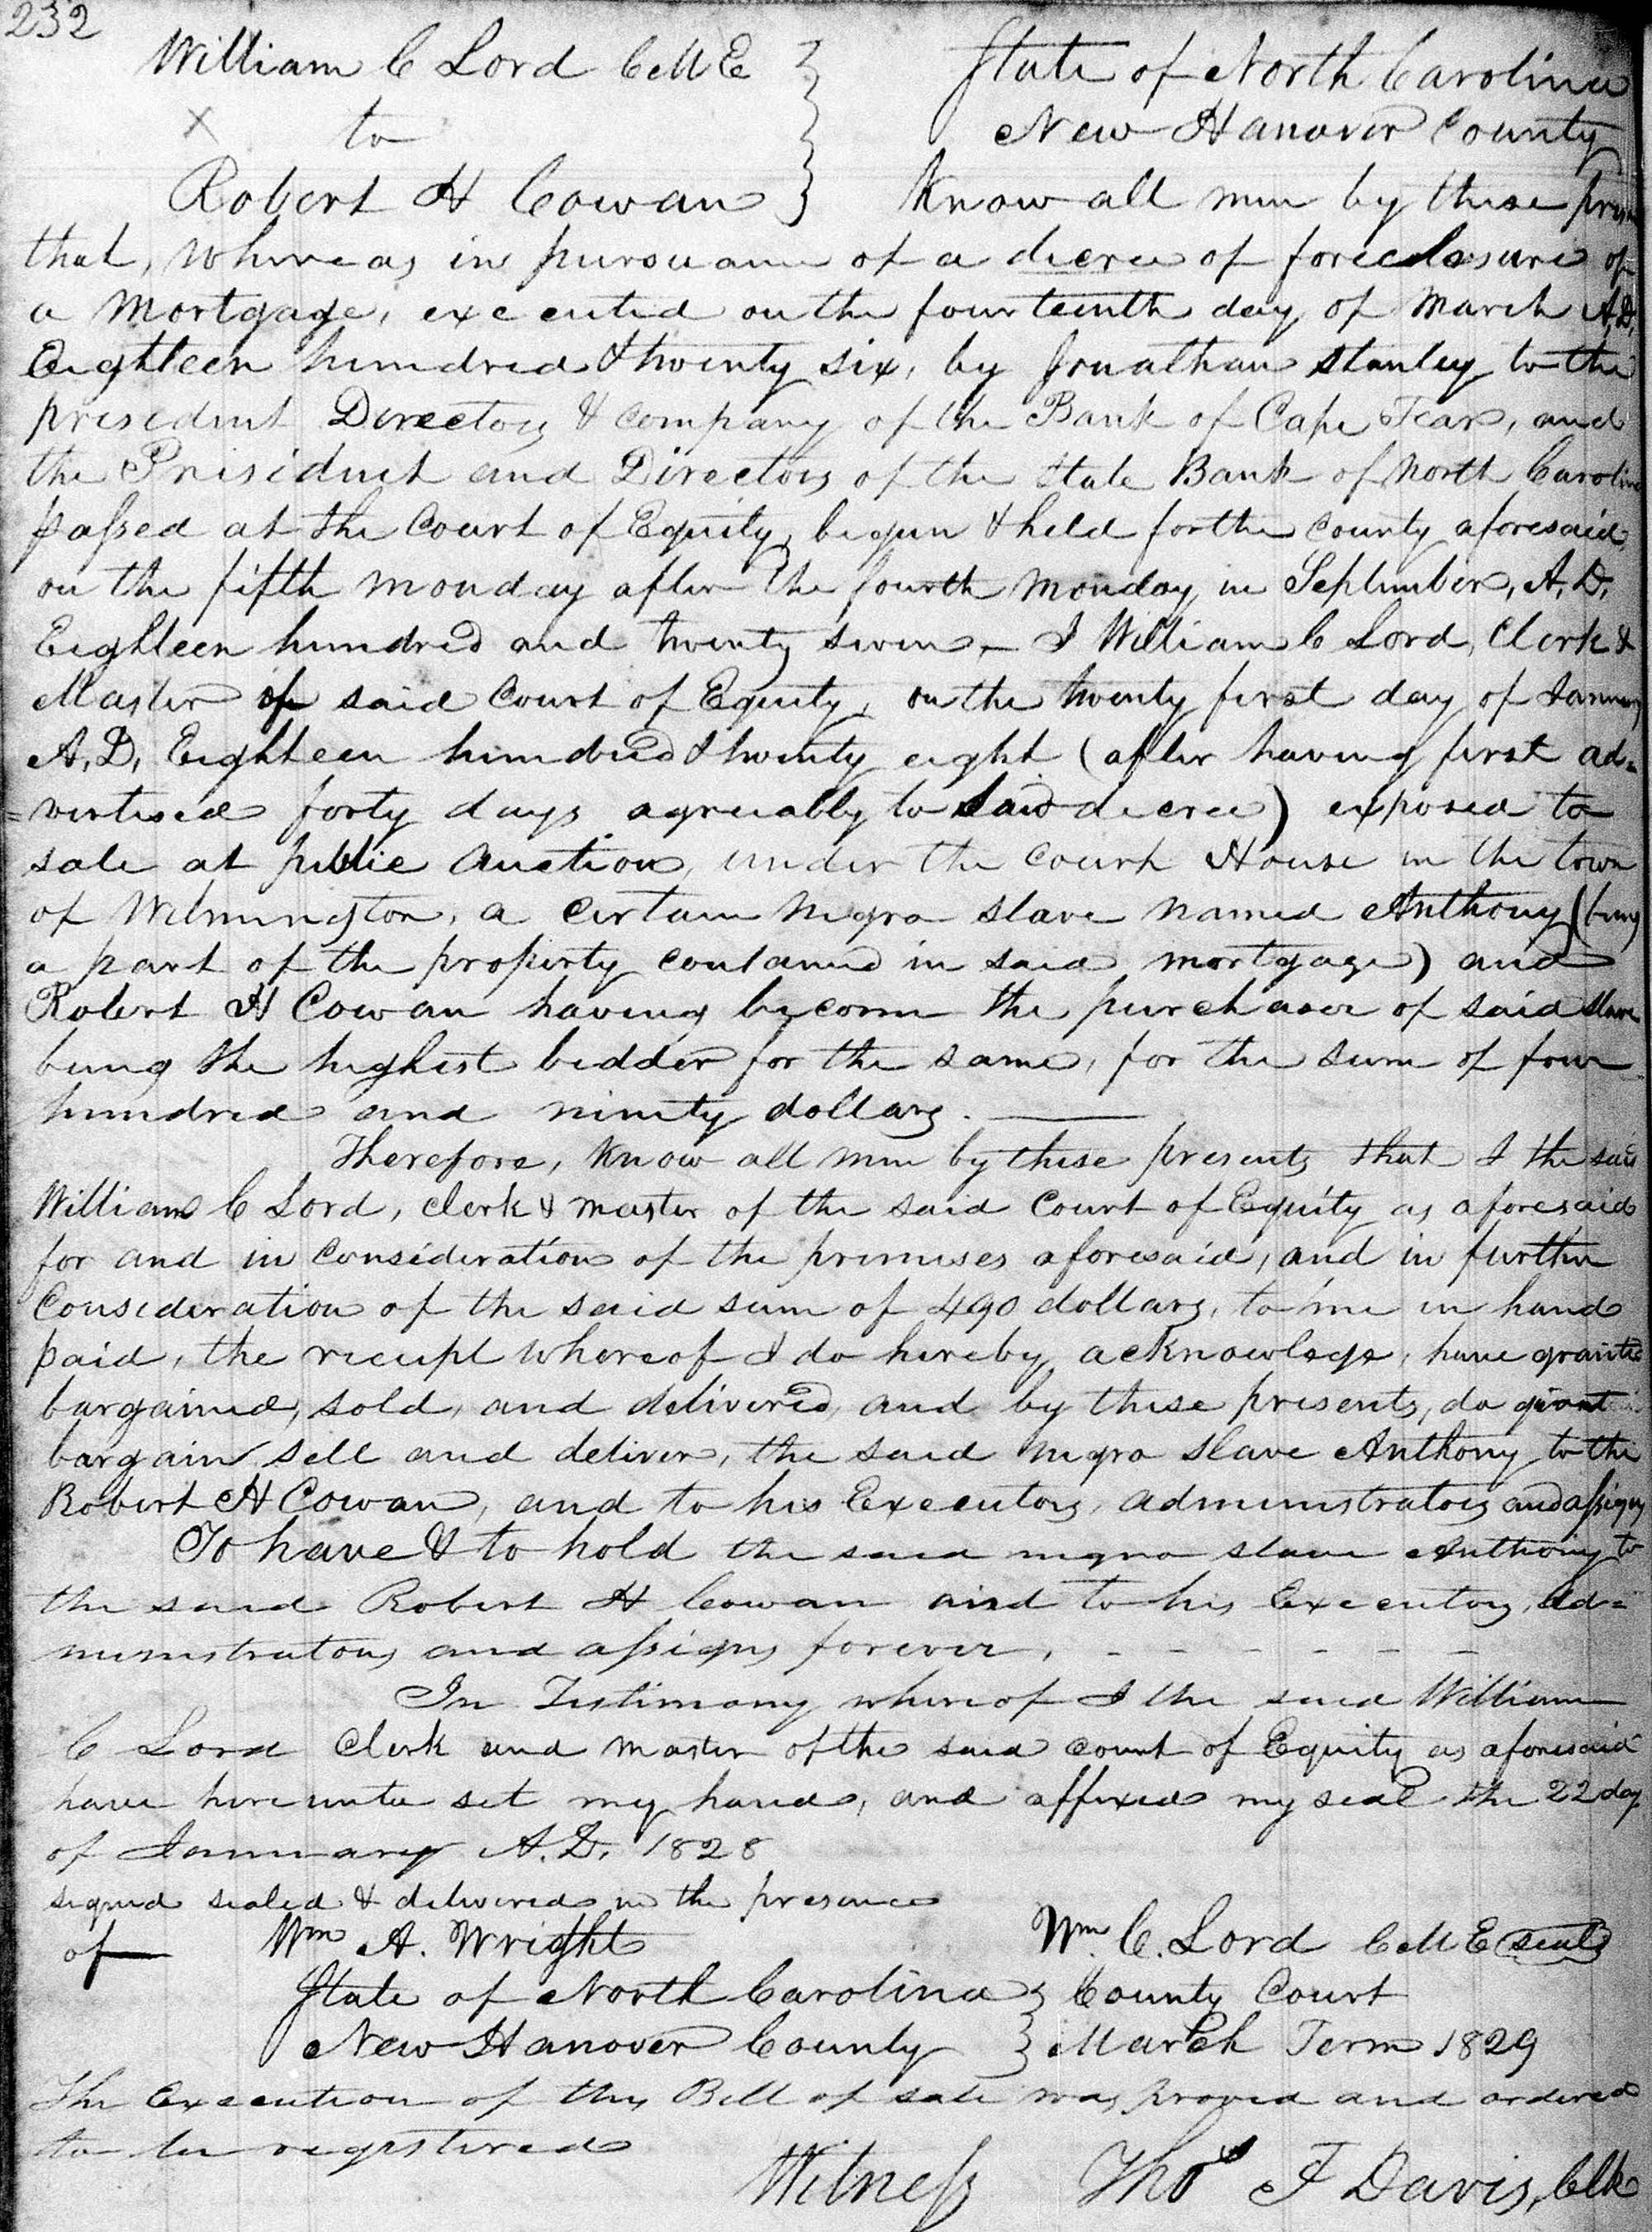 232
William C Lord C M E } State of North Carolina
X to New Hanover County
Robert H Cowan } Know all men by these
that, whereas in pursuance of a decree of foreclosure of
a Mortgage, executed on the fourteenth day of March A,D,
Eighteen hundred & twenty six, by Jonathan Stanley to the
president Directors & Company of the Bank of Cape Fear, and
the President and Directors of the State Bank of North Carolina
passed at the Court of Equity, begun & held for the County aforesaid,
on the fifth monday after the fourth Monday in September, A,D,
Eighteen hundred and twenty seven, - I William C Lord, Clerk &
Master of said Court of Equity, on the twenty first day of January
A,D, Eighteen hundred & twenty eight (after having first ad=
=vertised forty days agreeably to said decree) exposed to
sale at public Auction, under the Court House in the town
of Wilmington, a certain negro slave named Anthony (being
a part of the property contained in said mortgage) and
Robert H Cowan having become the purchaser of said slave
being the highest bidder for the same, for the sum of four
hundred and ninety dollars. ———
Therefore, Know all men by these presents that I the said
William C Lord, clerk & master of the said Court of Equity as aforesaid
for and in consideration of the premises aforesaid, and in further
Consideration of the said sum of 490 dollars, to me in hand
paid, the receipt whereof I do hereby acknowlege, have granted
bargained, sold, and delivered, and by these presents, do grant
bargain, sell and deliver, the said negro slave Anthony to the
Robert H Cowan, and to his Executors, administrators and assigns
To have & to hold the said negro slave Anthony to
the said Robert H Cowan and to his Executors, Ad=
ministrators and assigns forever, - - - - - -
In Testimony whereof I the said William
C Lord Clerk and Master of the said Court of Equity as aforesaid
have hereunto set my hand, and affixed my seal the 22 day
of January A.D. 1828
signed sealed & delivered in the presence
of— Wm A. Wright Wm. C. Lord C M E seal
State of North Carolina } County Court
New Hanover County } March Term 1829
The Execution of this Bill of sale was proved and ordered
to be registered
Witness Thos F Davis, Clk